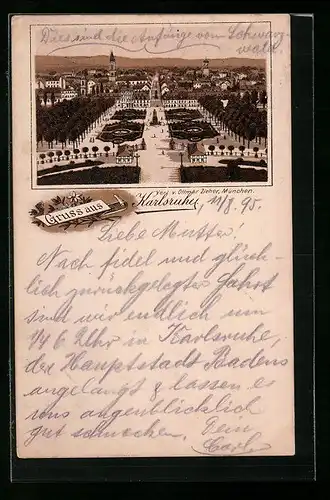 Dies sind die Anfänge vom Schwarz-
wald.
Verl. v. Ottmar Zieher, München.
Gruss aus
Karlsruhe, 11/8. 95.
Liebe Mutter!
Nach fidel und glück-
lich zurückgelegter Fahrt
sind wir endlich um
1/4 6 Uhr in Karlsruhe,
der Hauptstadt Badens
angelangt & lassen es
uns augenblicklich
gut schmecken. Dein
Carl